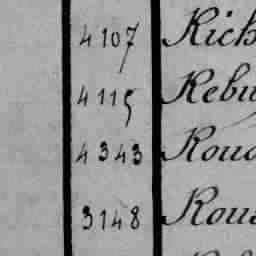 4107 Rich
4115 Rebu
4343 Rou
3148 Rou